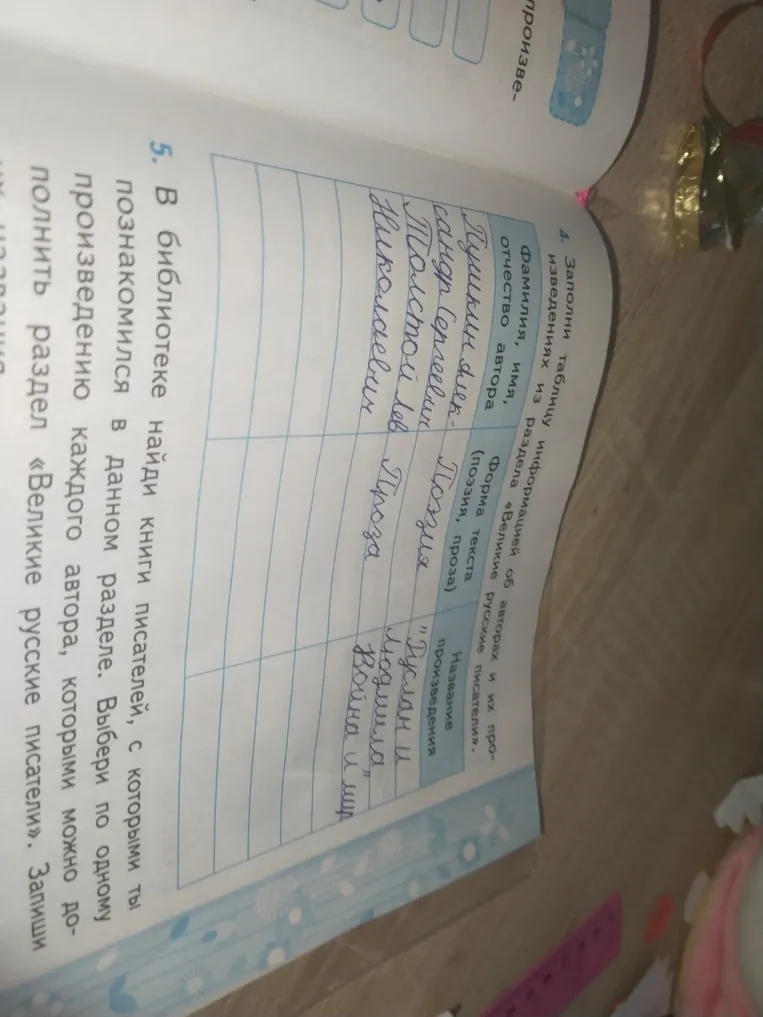 произве-
4. Заполни таблицу информацией об авторах и их про-
изведениях из раздела «Великие русские писатели».
Фамилия, имя,
отчество автора
Форма текста
(поэзия, проза)
Название
произведения
Пушкин Алек-
сандр Сергеевич
Поэзия
"Руслан и
Людмила"
Толстой Лев
Николаевич
Проза
Война и мир"
5. В библиотеке найди книги писателей, с которыми ты
познакомился в данном разделе. Выбери по одному
произведению каждого автора, которыми можно до-
полнить раздел «Великие русские писатели». Запиши